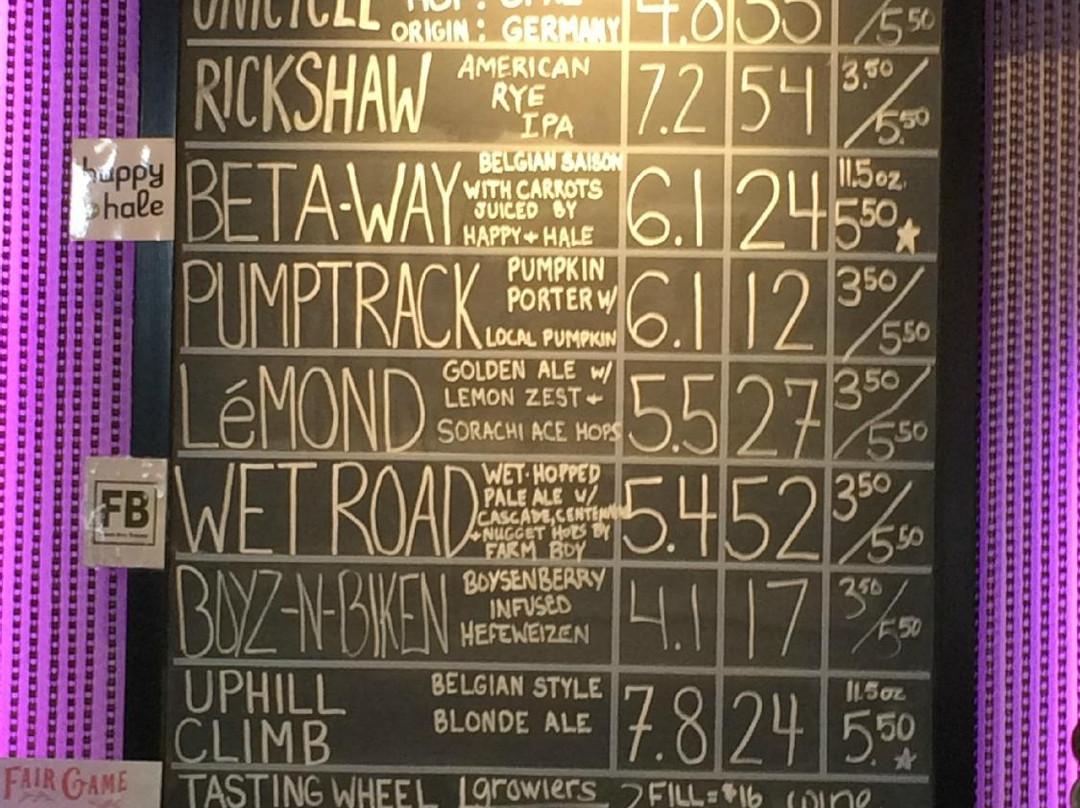 UNICYCLE HOP: OPAL
ORIGIN: GERMANY 4.8 55 /5.50
RICKSHAW AMERICAN
RYE
IPA 7.2 54 3.50/5.50
BETA-WAY BELGIAN SAISON
WITH CARROTS
JUICED BY
HAPPY + HALE 6.1 24 11.5oz.
5.50
happy
+ hale
PUMPTRACK PUMPKIN
PORTER W/
LOCAL PUMPKIN 6.1 12 3.50/5.50
LéMOND GOLDEN ALE w/
LEMON ZEST +
SORACHI ACE HOPS 5.5 27 3.50/5.50
FB
WET ROAD WET-HOPPED
PALE ALE W/
CASCADE, CENTENNIAL
+ NUGGET HOPS BY
FARM BOY 5.4 52 3.50/5.50
BOYZ-N-BIKEN BOYSENBERRY
INFUSED
HEFEWEIZEN 4.1 17 3.50/5.50
UPHILL
CLIMB BELGIAN STYLE
BLONDE ALE 7.8 24 11.5oz
5.50
FAIR GAME
TASTING WHEEL growlers FILL=$16